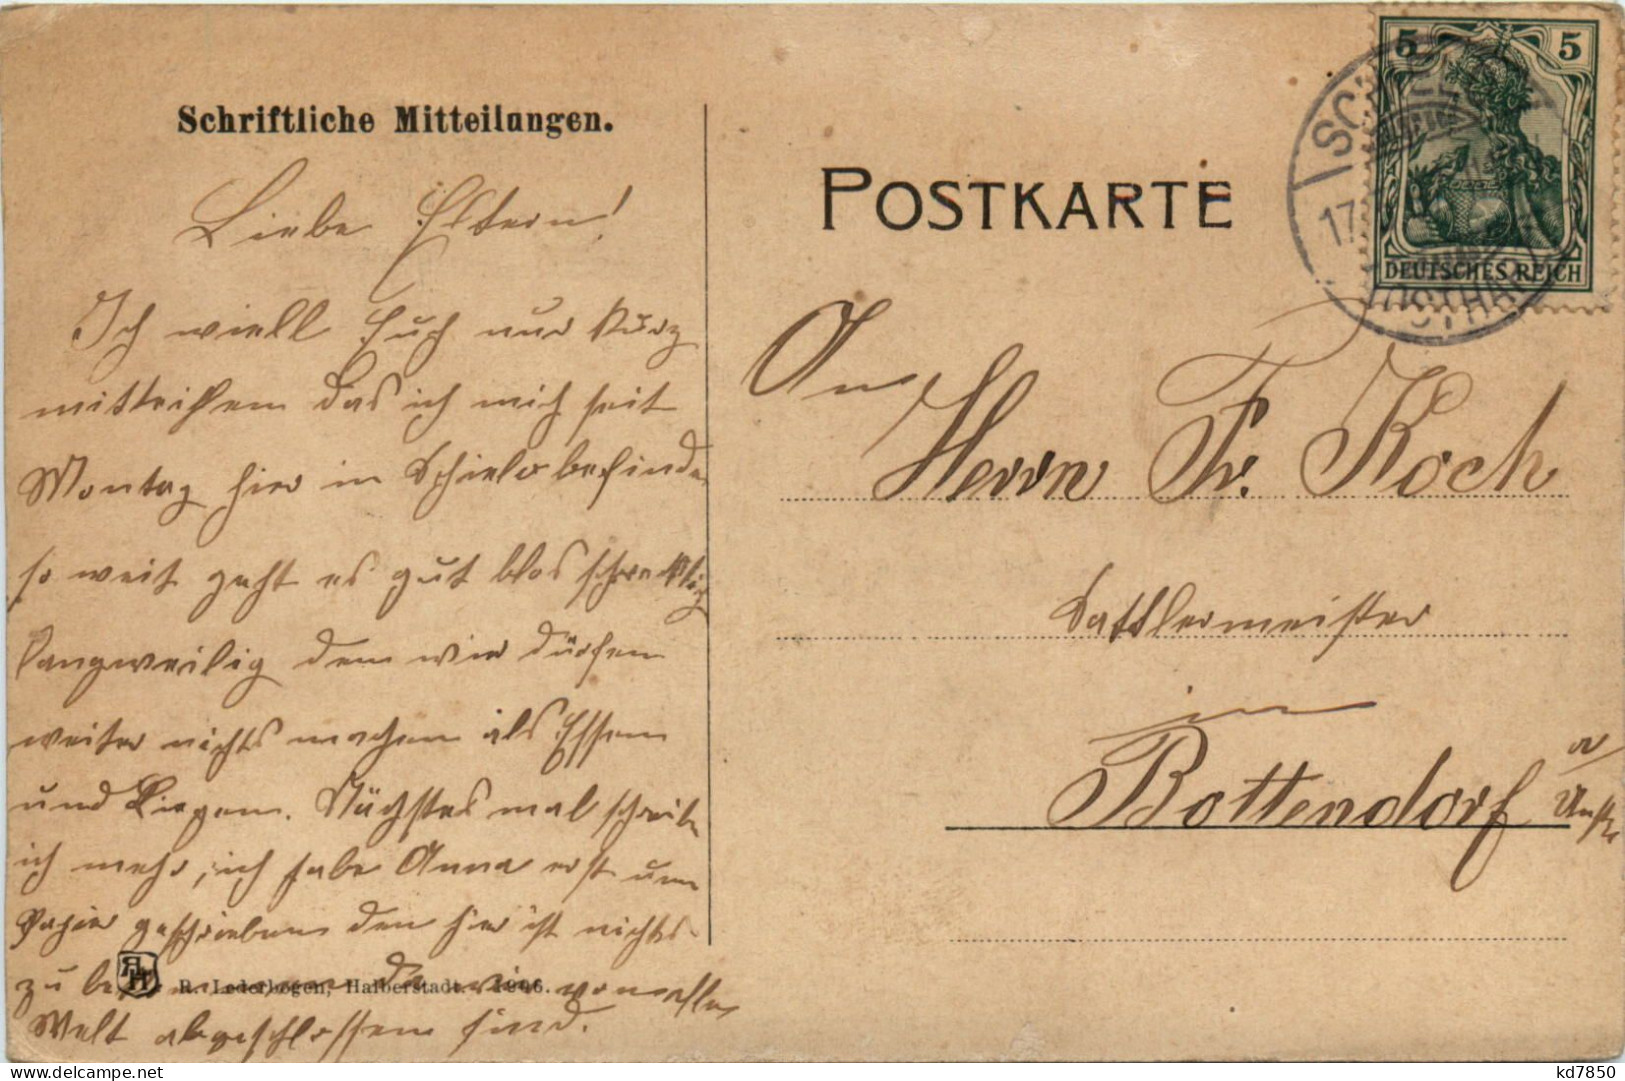 Schriftliche Mitteilungen.
Liebe Eltern!
Ich wiell Euch nur kurz
mitteihlen das ich mich seit
Montag hier in Schielo befinde
so weit geht es gut blos schrecklig
langweilig denn wir dürfen
weiter nichts machen als Essen
und Liegen. Nächstes mal schreibe
ich mehr, ich habe Anna erst um
Papier geschrieben den hier ist nichts
zu da wir von aller
Welt abgeschlossen sind.
RLH
R. Lederbogen, Halberstadt. 1906.
POSTKARTE
5 5
DEUTSCHES REICH
17
An
Herrn Fr. Koch
Sattlermeister
in
Bottendorf a/
Unstr.
kd7850